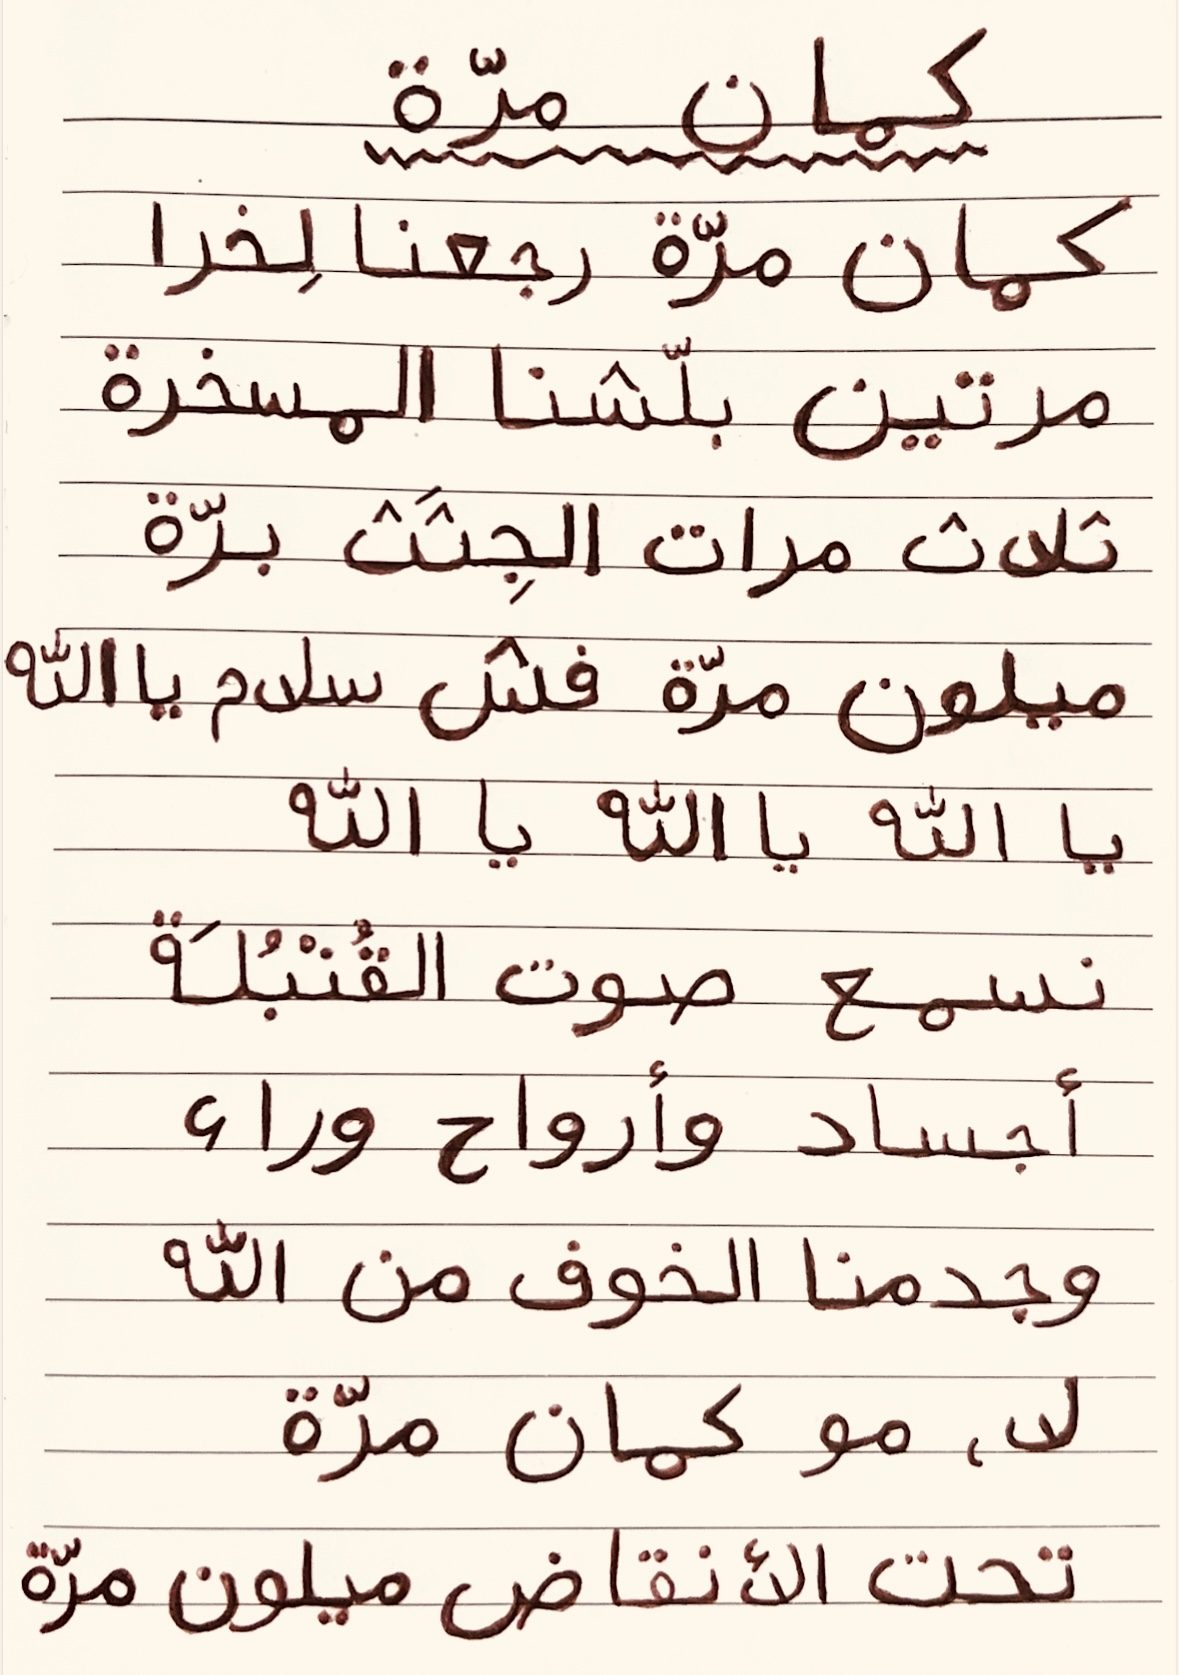 كمان مرّة
كمان مرّة رجعنا لِخرا
مرتين بلّشنا المسخرة
ثلاث مرات الجِثَث برّة
ميلون مرّة فش سلام يا الله
يا الله يا الله يا الله
نسمع صوت القُنْبُلَة
أجساد وأرواح وراء
وجدمنا الخوف من الله
لا، مو كمان مرّة
تحت الأنقاض ميلون مرّة